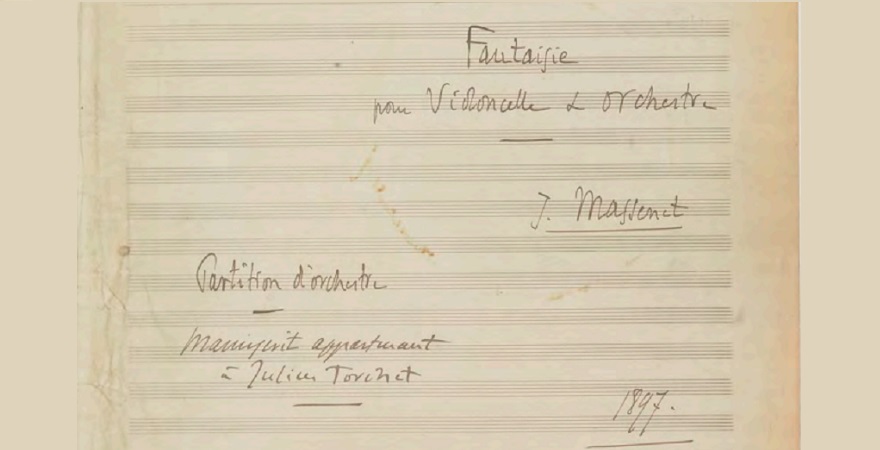 Fantaisie
pour Violoncelle & orchestre
J. Massenet
Partition d'orchestre
Manuscrit appartenant
à Julien Torchet
1897.